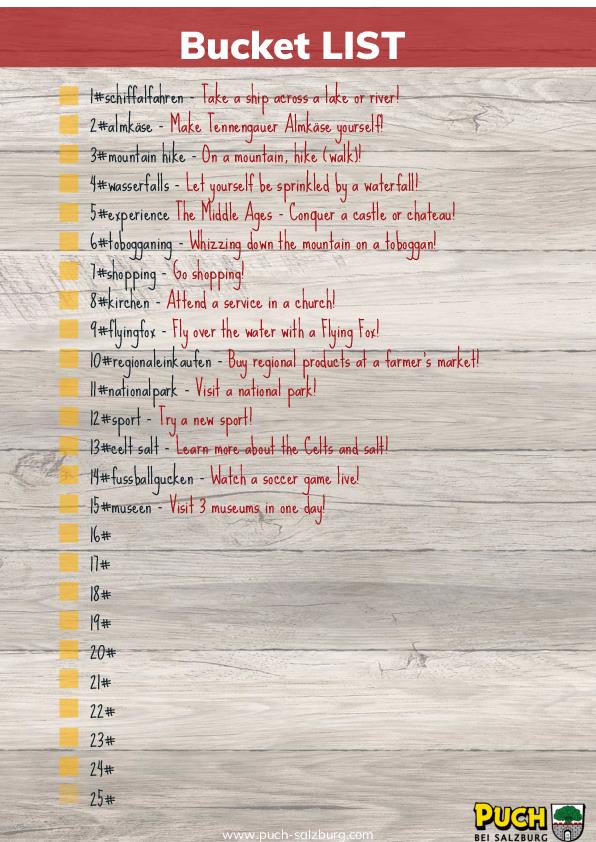 Bucket LIST
1#schiffalfahren - Take a ship across a lake or river!
2#almkäse - Make Tennengauer Almkäse yourself!
3#mountain hike - On a mountain, hike (walk)!
4#wasserfalls - Let yourself be sprinkled by a waterfall!
5#experience The Middle Ages - Conquer a castle or chateau!
6#tobogganing - Whizzing down the mountain on a toboggan!
7#shopping - Go shopping!
8#kirchen - Attend a service in a church!
9#flyingfox - Fly over the water with a Flying Fox!
10#regionaleinkaufen - Buy regional products at a farmer's market!
11#nationalpark - Visit a national park!
12#sport - Try a new sport!
13#celt salt - Learn more about the Celts and salt!
14#fussballgucken - Watch a soccer game live!
15#museen - Visit 3 museums in one day!
16#
17#
18#
19#
20#
21#
22#
23#
24#
25#
PUCH
BEI SALZBURG
www.puch-salzburg.com